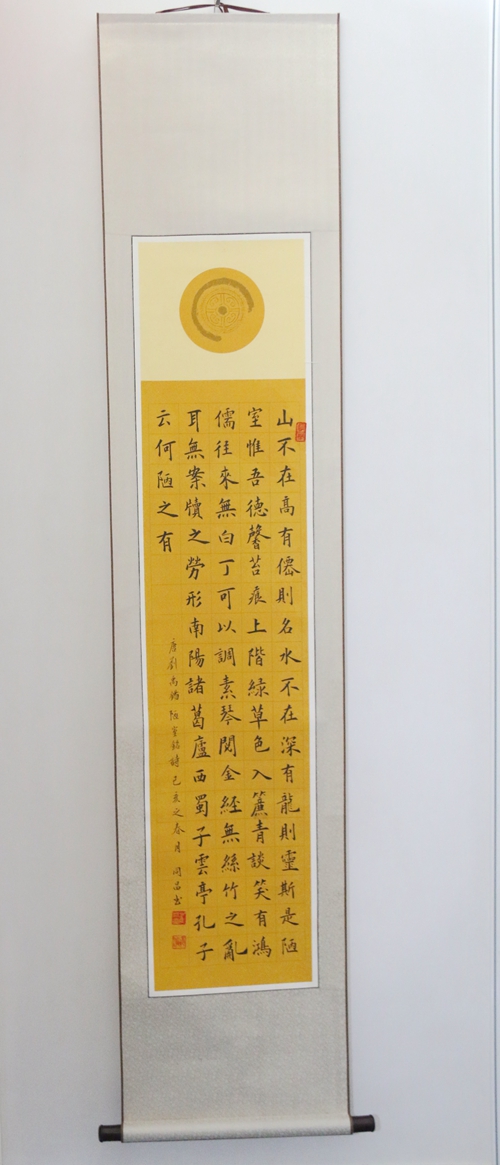 山不在高有僊則名水不在深有龍則靈斯是陋
室惟吾德馨苔痕上階綠草色入簾青談笑有鴻
儒往來無白丁可以調素琴閱金經無絲竹之亂
耳無案牘之勞形南陽諸葛廬西蜀子雲亭孔子
云何陋之有
唐劉禹錫陋室銘時己亥之春月書